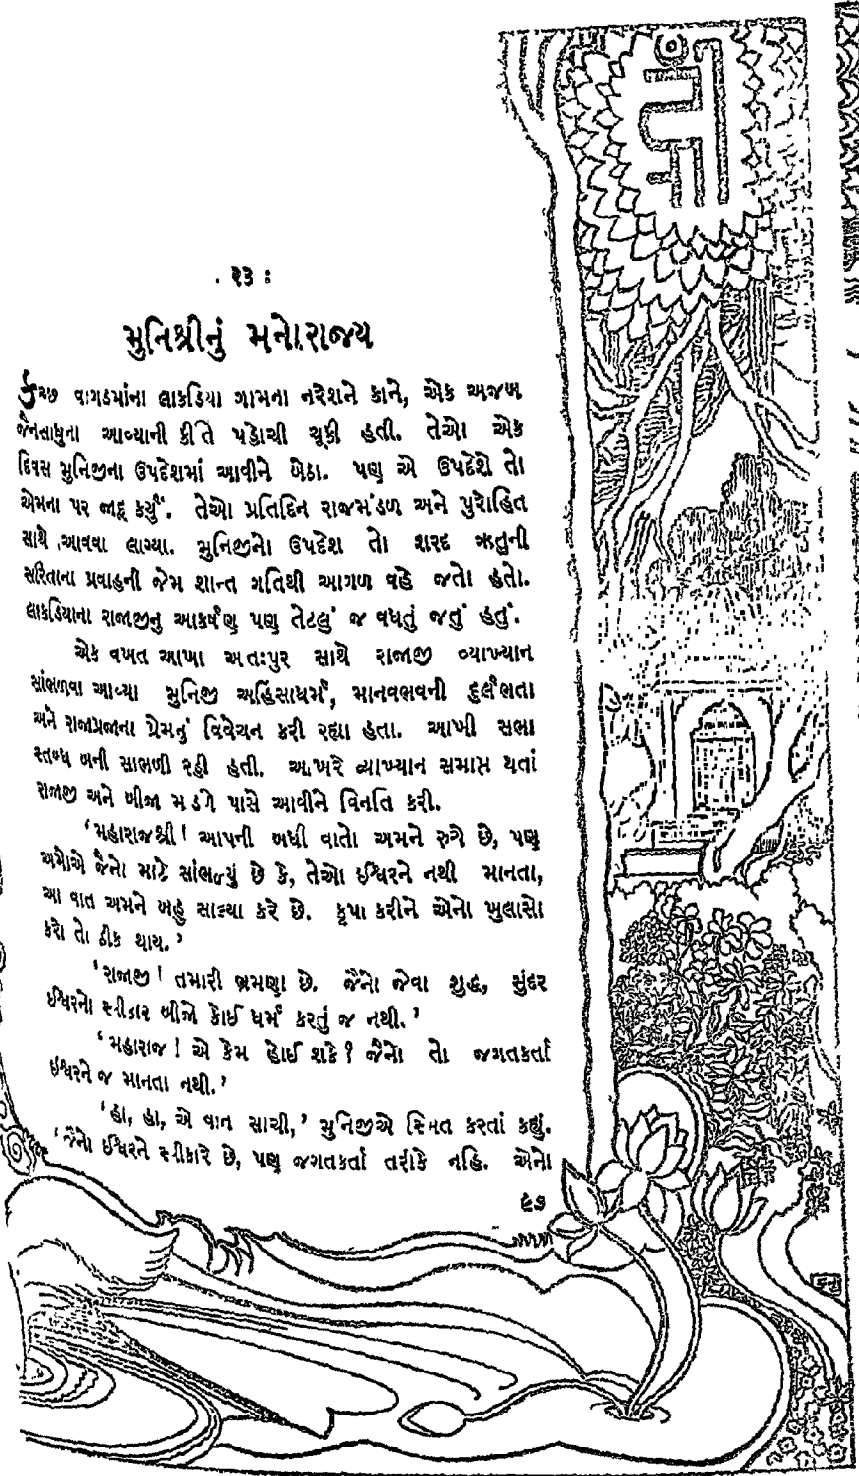 : ૨૩ :
મુનિશ્રીનું મનોરાજ્ય
કચ્છ વાગડમાંના લાકડિયા ગામના નરેશને કાને, એક અજબ
જૈનસાધુના આવ્યાની કીર્તિ પહોચી ચૂકી હતી. તેઓ એક
દિવસ મુનિજીના ઉપદેશમાં આવીને બેઠા. પણ એ ઉપદેશે તો
એમના પર જાદૂ કર્યું. તેઓ પ્રતિદિન રાજમંડળ અને પુરોહિત
સાથે આવવા લાગ્યા. મુનિજીનો ઉપદેશ તો શરદ ઋતુની
સરિતાના પ્રવાહની જેમ શાન્ત ગતિથી આગળ વહે જતો હતો.
લાકડિયાના રાજાજીનુ આકર્ષણ પણ તેટલું જ વધતું જતું હતું.
એક વખત આખા અતઃપુર સાથે રાજાજી વ્યાખ્યાન
સાંભળવા આવ્યા મુનિજી અહિંસાધર્મ, માનવભવની દુર્લભતા
અને રાજાપ્રજાના પ્રેમનું વિવેચન કરી રહ્યા હતા. આખી સભા
સ્તબ્ધ બની સાભળી રહી હતી. આખરે વ્યાખ્યાન સમાપ્ત થતાં
રાજાજી અને બીજા મડળે પાસે આવીને વિનતિ કરી.
‘મહારાજશ્રી! આપની બધી વાતો અમને રુચે છે, પણ
અમોએ જૈનો માટે સાંભળ્યું છે કે, તેઓ ઈશ્વરને નથી માનતા,
આ વાત અમને બહુ સાલ્યા કરે છે. કૃપા કરીને એનો ખુલાસો
કરો તો ઠીક થાય.’
‘રાજાજી! તમારી ભ્રમણા છે. જૈનો જેવા શુદ્ધ, સુંદર
ઈશ્વરનો સ્વીકાર બીજો કોઈ ધર્મ કરતું જ નથી.’
‘મહારાજ! એ કેમ હોઈ શકે? જૈનો તો જગતકર્તા
ઈશ્વરને જ માનતા નથી.’
‘હા, હા, એ વાત સાચી,’ મુનિજીએ સ્મિત કરતાં કહ્યું.
‘જૈનો ઈશ્વરને સ્વીકારે છે, પણ જગતકર્તા તરીકે નહિ. એનો
૯૭